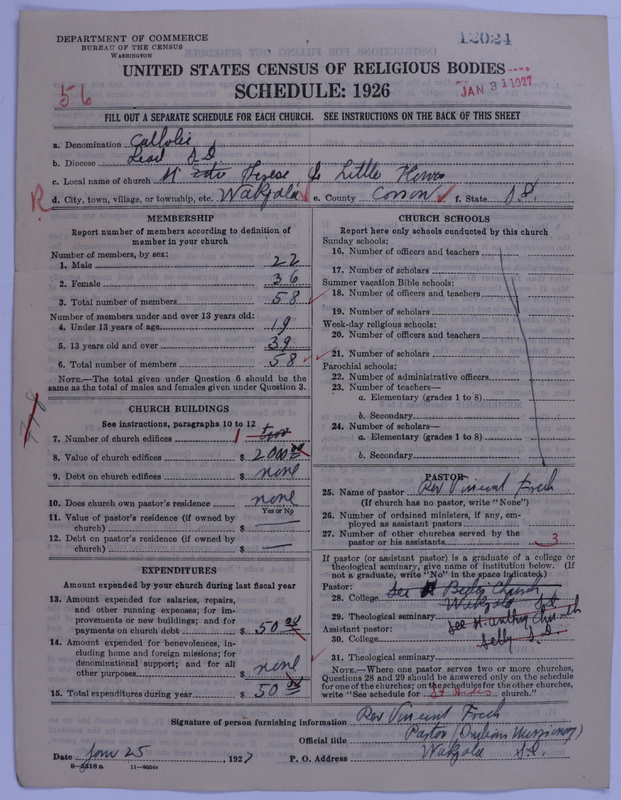 DEPARTMENT OF COMMERCE
BUREAU OF THE CENSUS
WASHINGTON
12024
UNITED STATES CENSUS OF RELIGIOUS BODIES
SCHEDULE: 1926
56
JAN 31 1927
FILL OUT A SEPARATE SCHEDULE FOR EACH CHURCH. SEE INSTRUCTIONS ON THE BACK OF THIS SHEET
a. Denomination Catholic
b. Diocese Lead S D
c. Local name of church St Therese Little Flower
R d. City, town, village, or township, etc. Wakpala e. County Corson f. State S.D.
MEMBERSHIP
Report number of members according to definition of
member in your church
Number of members, by sex:
1. Male 22
2. Female 36
3. Total number of members 58
Number of members under and over 13 years old:
4. Under 13 years of age 19
5. 13 years old and over 39
6. Total number of members 58
NOTE.—The total given under Question 6 should be
same as the total of males and females given under Question 3.
CHURCH BUILDINGS
See instructions, paragraphs 10 to 12
7. Number of church edifices 1
8. Value of church edifices $ 2000 00
9. Debt on church edifices $ none
10. Does church own pastor's residence none
Yes or No
11. Value of pastor's residence (if owned by
church) $ —
12. Debt on pastor's residence (if owned by
church) $ —
EXPENDITURES
Amount expended by your church during last fiscal year
13. Amount expended for salaries, repairs,
and other running expenses; for im-
provements or new buildings; and for
payments on church debt $ 50 00
14. Amount expended for benevolences, in-
cluding home and foreign missions; for
denominational support; and for all
other purposes $ none
15. Total expenditures during year $ 50 00
CHURCH SCHOOLS
Report here only schools conducted by this church
Sunday schools:
16. Number of officers and teachers
17. Number of scholars
Summer vacation Bible schools:
18. Number of officers and teachers
19. Number of scholars
Week-day religious schools:
20. Number of officers and teachers
21. Number of scholars
Parochial schools:
22. Number of administrative officers
23. Number of teachers—
a. Elementary (grades 1 to 8)
b. Secondary
24. Number of scholars—
a. Elementary (grades 1 to 8)
b. Secondary
PASTOR
25. Name of pastor Rev Vincent
(If church has no pastor, write "None")
26. Number of ordained ministers, if any, em-
ployed as assistant pastors
27. Number of other churches served by the
pastor or his assistants 3
If pastor (or assistant pastor) is a graduate of a college or
theological seminary, give name of institution below. (If
not a graduate, write "No" in the space indicated.)
Pastor:
28. College See Church
Wakpala S D
29. Theological seminary
Assistant pastor: See St. Church
30. College S D
31. Theological seminary
NOTE.—Where one pastor serves two or more churches,
Questions 28 and 29 should be answered only on the schedule
for one of the churches; on the schedules for the other churches,
write "See schedule for St church."
Signature of person furnishing information Rev Vincent
Official title Pastor (Indian Missionary)
Date Jan 25, 1927 P. O. Address Wakpala S.D.
8—5518a 11—9056